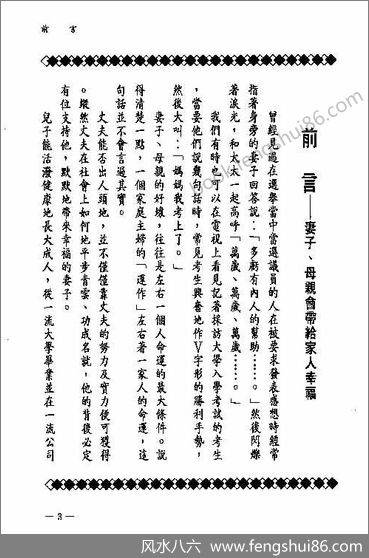 前言
前　言──妻子、母親會帶給家人幸福
曾經見過在選舉當中當選議員的人在被要求發表感想時經常
指著身旁的妻子回答說：「多虧有內人的幫助……。」然後閃爍
著淚光，和太太一起高呼「萬歲、萬歲、萬歲……。」
我們有時也可以在電視上看見記著採訪大學入學考試的考生
，當要他們說幾句話時，常見考生興奮地作Ｖ字形的勝利手勢，
然後大叫：「媽媽我考上了。」
妻子、母親的好壞，往往是左右一個人命運的最大條件。說
得清楚一點，一個家庭主婦的「運作」左右著一家人的命運，這
句話並不會言過其實。
丈夫能否出人頭地，並不僅僅靠丈夫的努力及實力便可獲得
。縱然丈夫在社會上如何地平步青雲、功成名就，他的背後必定
有位支持他，默默地帶來幸福的妻子。
兒子能活潑健康地長大成人，從一流大學畢業並在一流公司
— 3 —
www.fengshui86.com
风水八六 - www.fengshui86.com